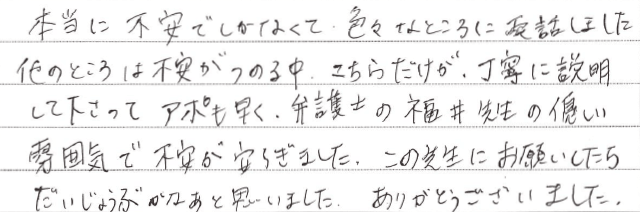 本当に不安でしかなくて、色々なところに電話しました
他のところは不安がつのる中、こちらだけが、丁寧に説明
して下さって アポも早く、弁護士の福井先生の優しい
雰囲気で不安が安らぎました。この先生にお願いしたら
だいじょうぶかなあと思いました。ありがとうございました。